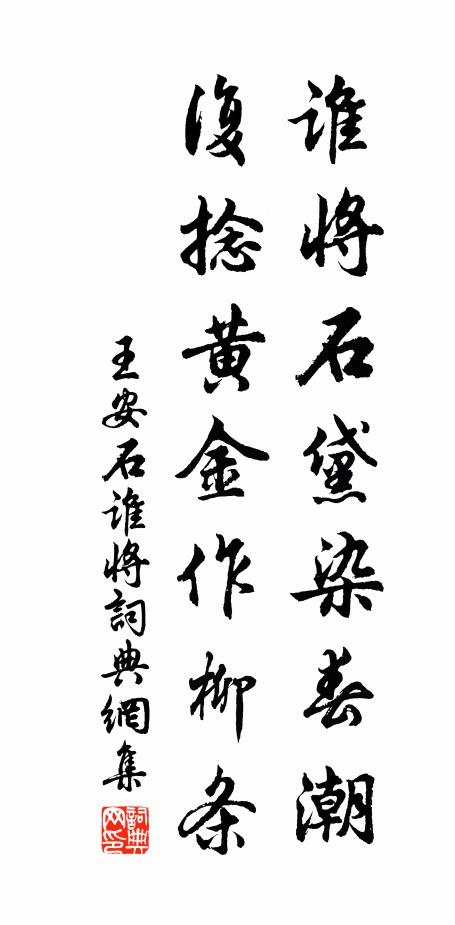 谁将石黛染春潮
复捻黄金作柳条
王安石谁将詞典網集
詞典网印